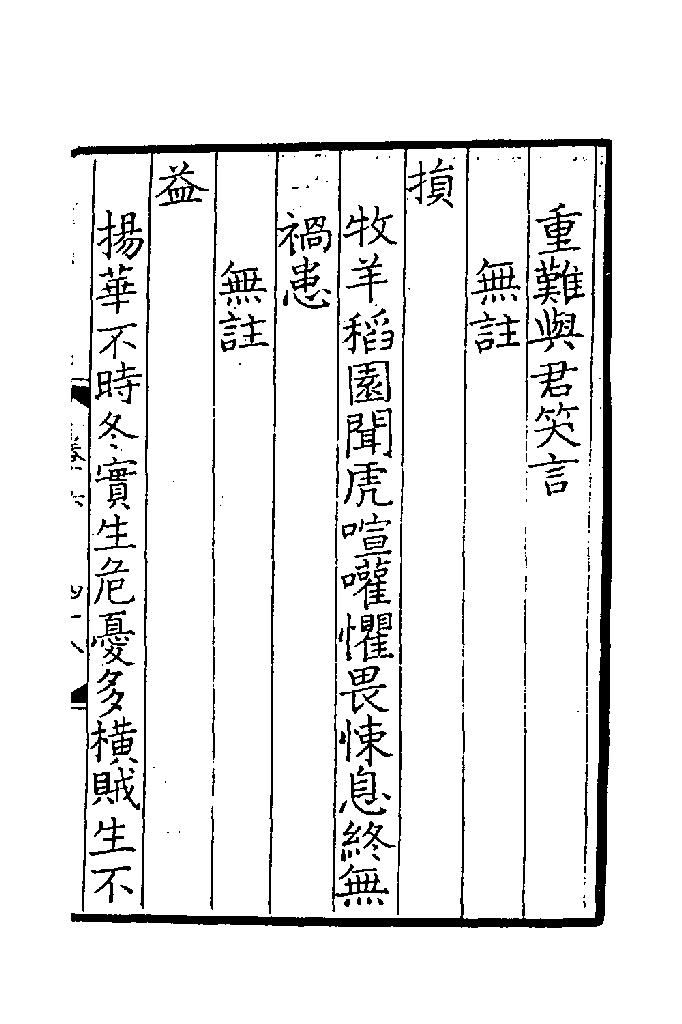 重難與君笑言
無註
損
牧羊稻園聞虎喧嚾懼畏悚息終無
禍患
無註
益
揚華不時冬實生危憂多橫賊生不